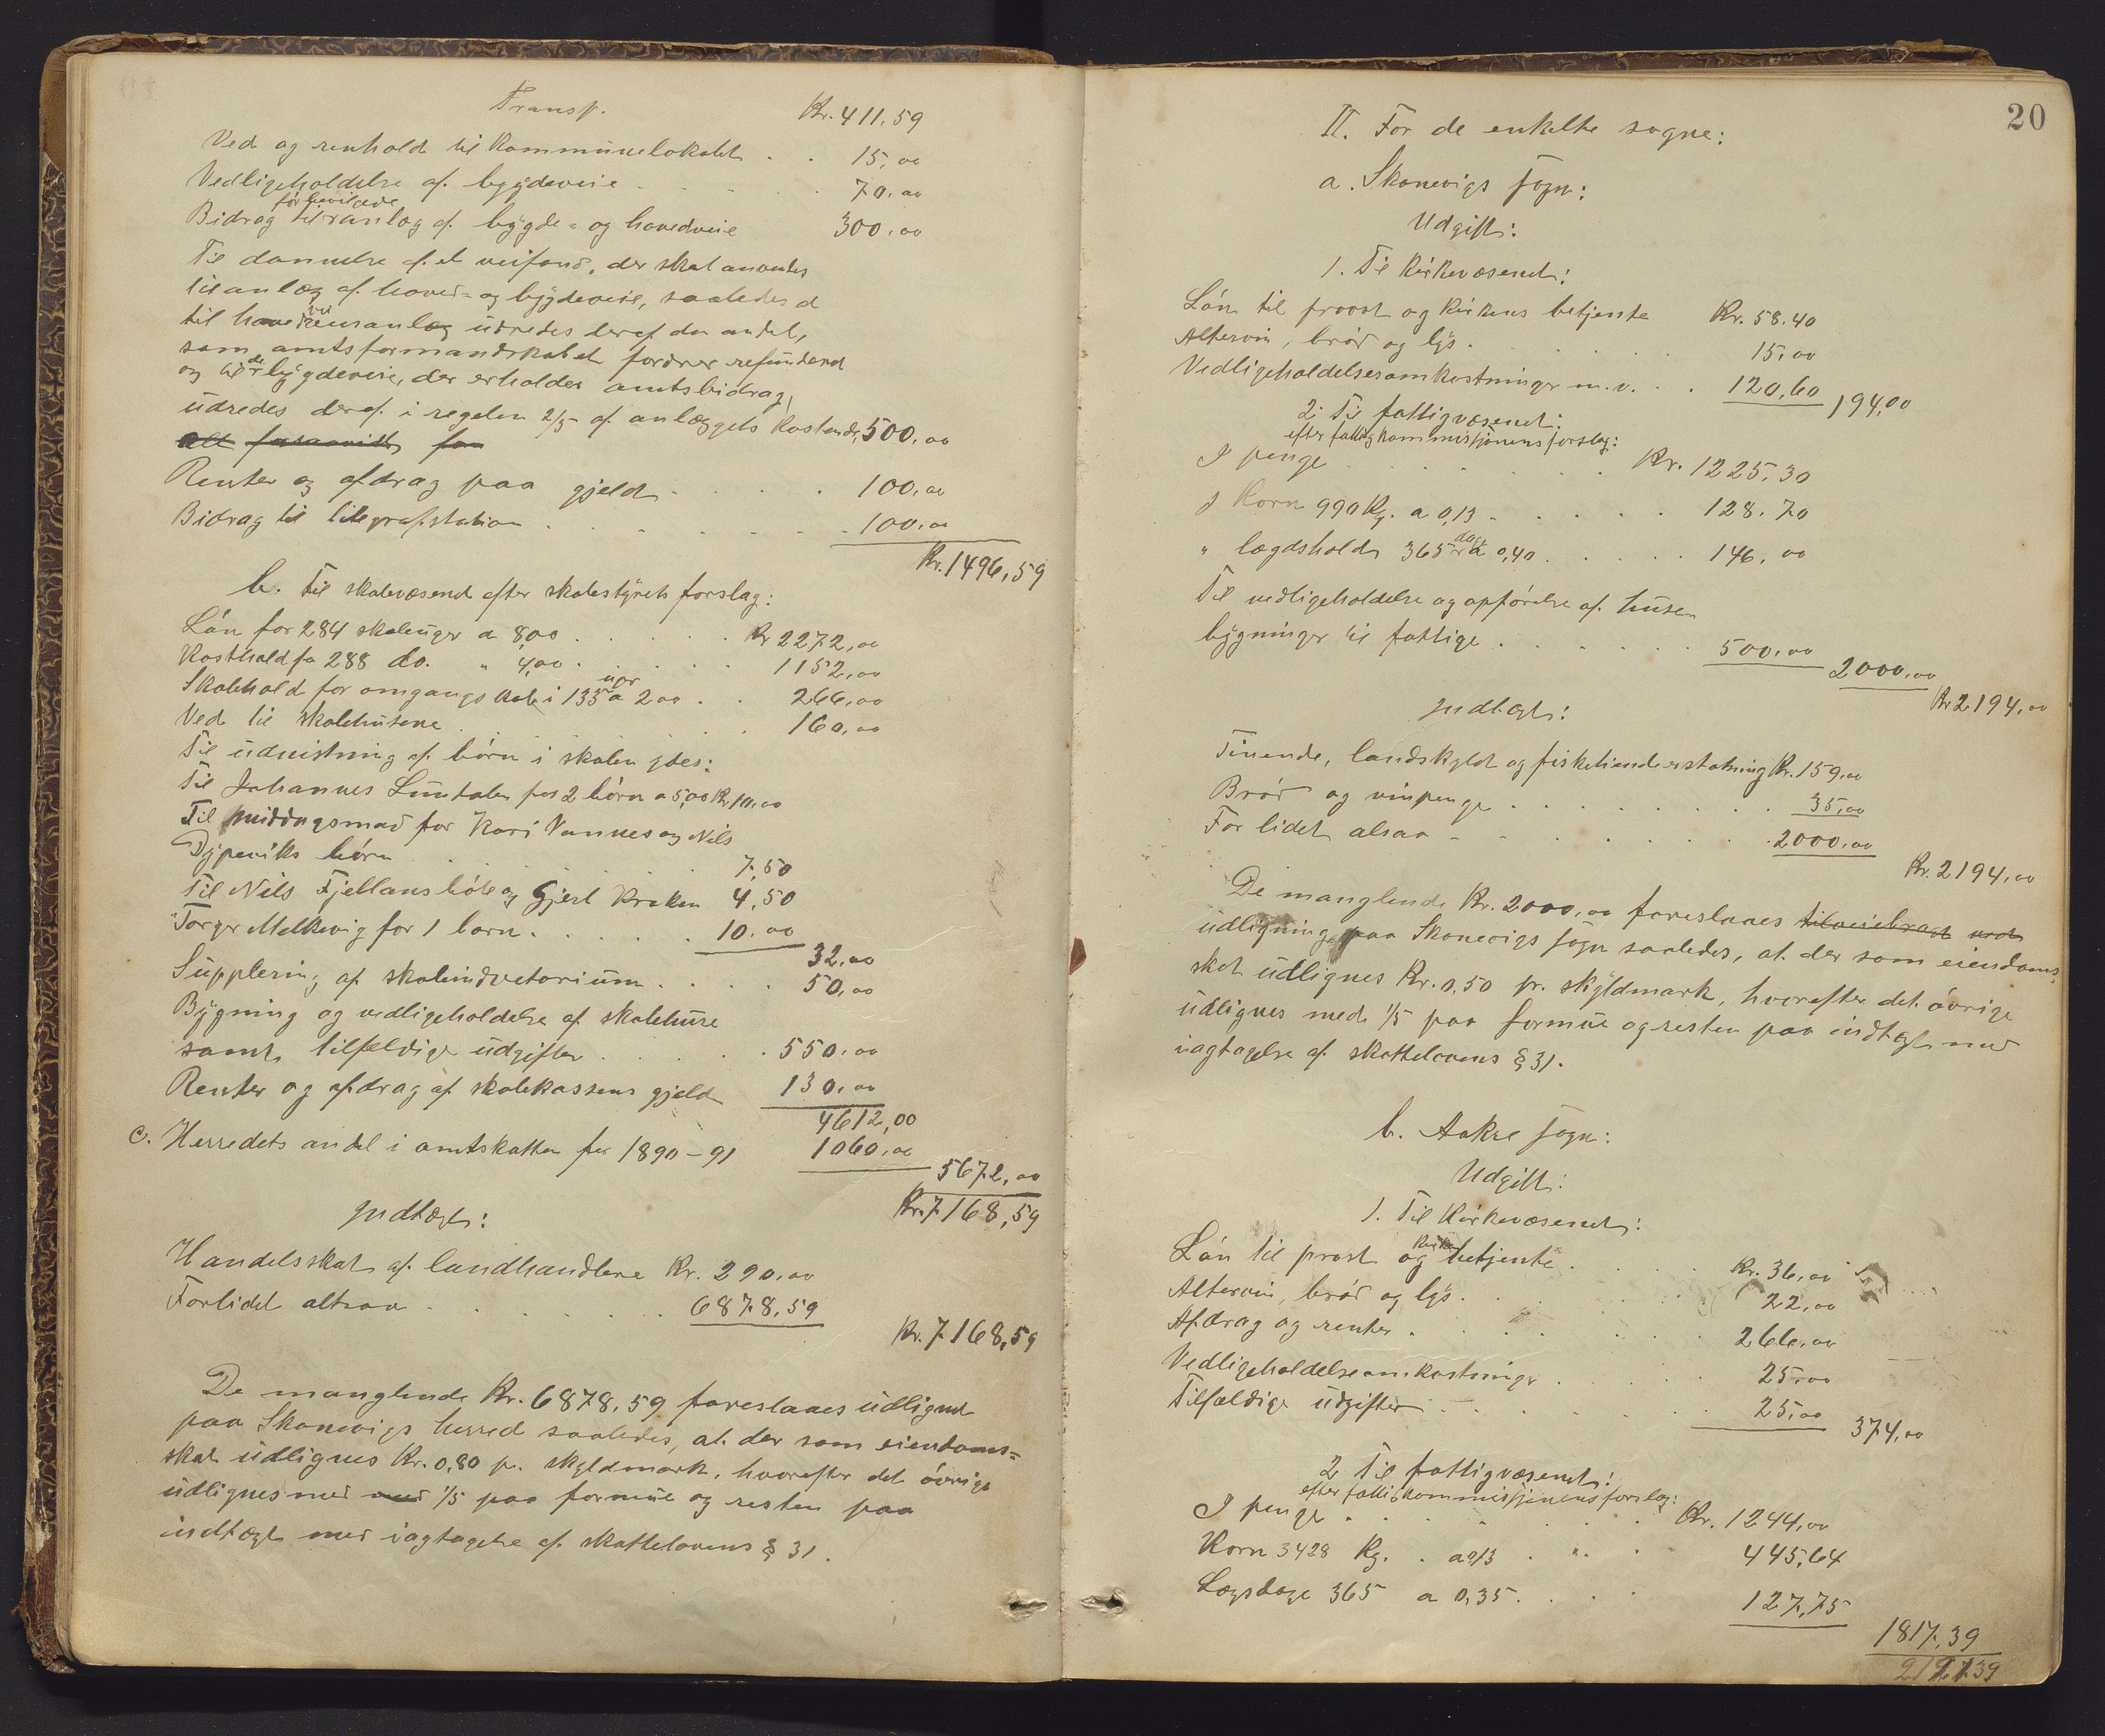 Transp. Kr. 411,59
Ved og renhold til kommunelokalet . . 15,00
Vedligeholdelse af bygdeveie . . . . 70,00
forhenværende
Bidrag til anlæg af bygde- og hovedveie 300,00
Til dannelse af et veifond, der skal anvendes
til anlæg af hoved- og bygdeveie, saaledes at
til hovedveiensanlæg udredes deraf den andel,
som amtsformandskabet fordrer refunderet
og til de bygdeveie, der erholder amtsbidrag,
udredes deraf i regelen 2/5 af anlæggets kostende, 500,00
Renter og afdrag paa gjeld . . . . 100,00
Bidrag til telegrafstation . . . . . 100,00
Kr. 1496,59
b. Til skolevæsenet efter skolestyrets forslag:
Lön for 284 skoleuger a 8,00 . . . . . Kr 2272,00
Kosthold for 288 do. " 4,00 . . . . . 1152,00
Skolehold for omgangsskole i 133 uger a 2 00 . . 266,00
Ved til skolehusene . . . . . 160,00
Til udnistning af börn i skolen ydes:
Til Johannes Luntalen for 2 börn a 5,00 Kr 10,00
Til middagsmad for Kari Vannes og Nils
Dypeviks börn . . . . 7,50
Til Nils Fjellanshöle og Gjest Kraken 4,50
Torger Melkevig for 1 barn . . . . . 10,00
32,00
Supplering af skoleindvetarium . . . . 50,00
Bygning og vedligeholdelse af skolehuse
samt tilfeldige udgifter . . . . . 550,00
Renter og afdrag af skolekassens gjeld 130,00
4612,00
c. Herredets andel i amtskatten for 1890-91 1060,00
5672,00
Kr. 7168,59
Indtægt:
Handelsskat af landhandlere Kr. 290,00
Forlidet altsaa . . . . . . 6878,59
Kr. 7168,59
De manglende Kr. 6878,59 foreslaaes udlignet
paa Skonevigs herred saaledes, at der som eiendoms-
skat udlignes Kr. 0,80 pr. skyldmark, hvorefter det övrige
udlignes med med 1/5 paa formue og resten paa
indtægt med iagtagelse af skattelovens § 31.
20
II. For de enkelte sogne:
a. Skonevigs sogn:
Udgift:
1. Til kirkevæsenet:
Lön til provst og kirkens betjente Kr. 58.40
Altervin, bröd og lys . . . . . 15,00
Vedligeholdelsesomkostninger m.v. . . 120,60 194,00
2. Til fattigvæsenet:
efter fattigkommissjonens forslag:
I penge . . . . . . Kr. 1225,30
I korn 990 Kg. a 0,13 . . . . . 128.70
" lægdshold 365 dage a 0,40 . . . . . 146,00
Til vedligeholdelse og opförelse af huse
bygninger til fattige . . . . . . 500,00 2000,00
Kr 2194,00
Indtægt:
Tiende, landskyld og fisketiendeerstatning Kr. 159,00
Bröd og vinpenge . . . . . . . . 35,00
For lidet alsaa . . . . . . . . 2000,00
Kr. 2194,00
De manglende Kr. 2000,00 foreslaaes tilveiebragt ved
udligning paa Skonevigs sogn saaledes, at der som eiendoms-
skat udlignes Kr. 0,50 pr. skyldmark, hvorefter det övrige
udlignes med 1/5 paa formue og resten paa indtægt med
iagtagelse af skattelovens § 31.
b. Aakre sogn:
Udgift:
1. Til Kirkevæsenet:
Lön til prost og kirke betjente . . . . Kr. 36,00
Altervin, bröd og lys . . . . . 22,00
Afdrag og renter . . . . . . 266,00
Vedligeholdelseomkostninger . . . . . 25,00
Tilfældige udgifter . . . . . . 25,00 374,00
2 Til fattigvæsenet:
efter fattigkommissjonens forslag:
I penge . . . . . . Kr. 1244,00
Korn 3428 Kg. . a 0,13 . . . 445,64
Lægsdage 365 a 0,35 . . . . 127,75
1817,39